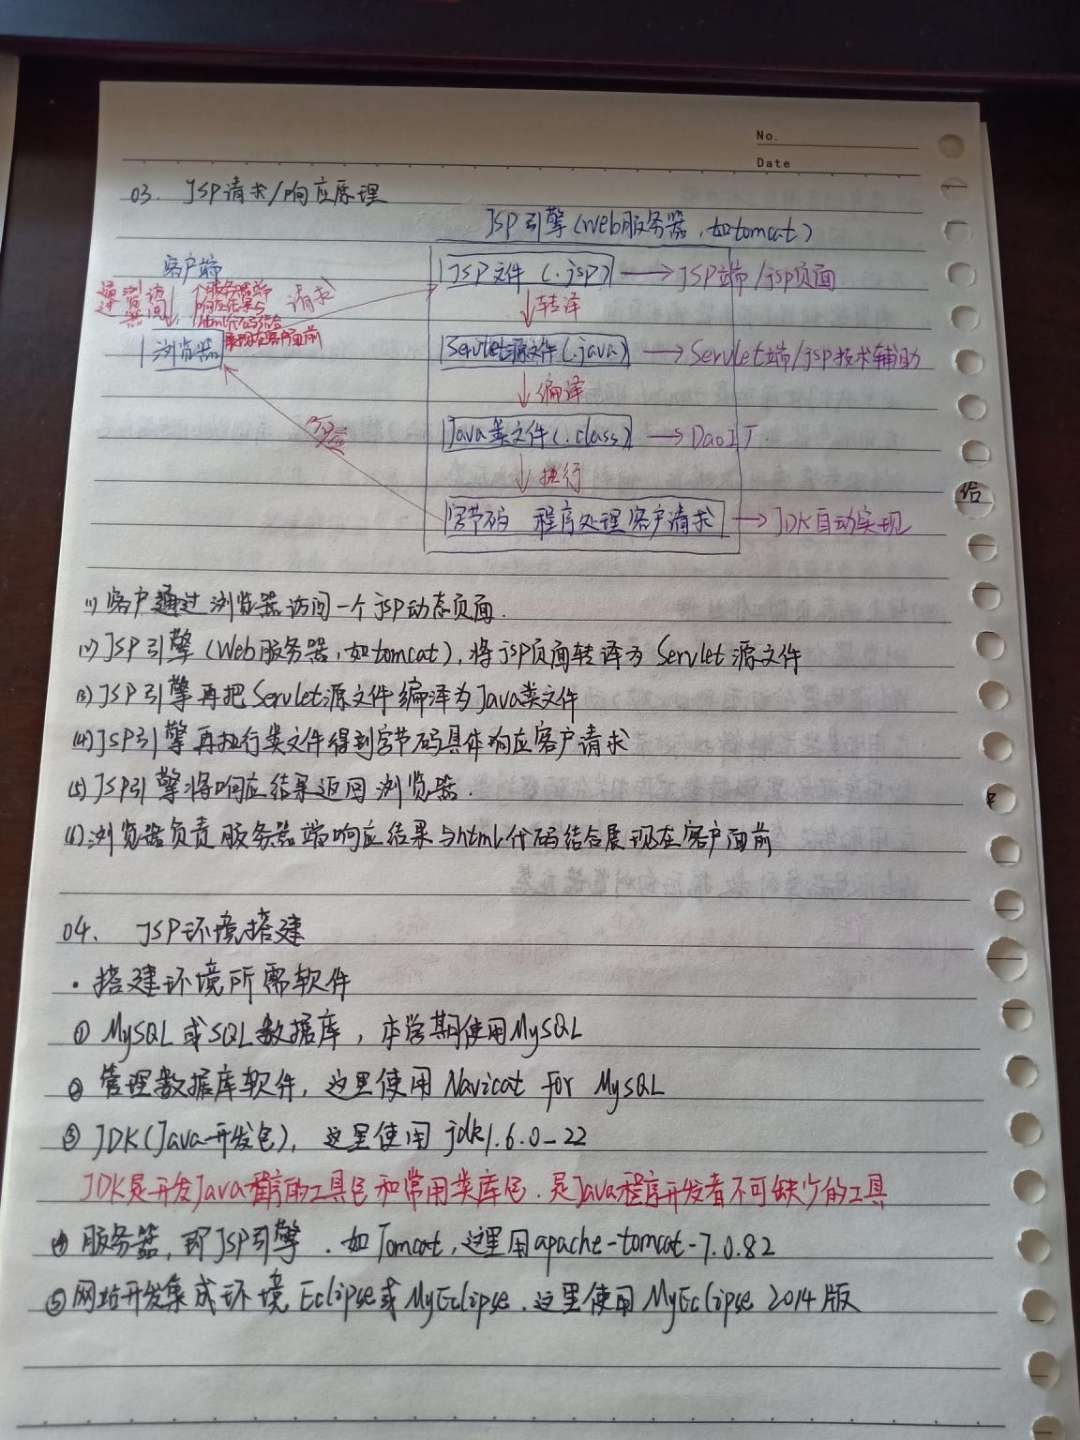 No.
Date
03. JSP请求/响应原理
JSP引擎(Web服务器,如tomcat)
客户端
JSP文件(.jsp) → JSP端/jsp页面
通过浏览器访问
服务器端
响应结果与
html代码结合
展现在客户面前
请求
↓转译
浏览器
Servlet源文件(.java) → Servlet端/jsp技术辅助
↓编译
响应
Java类文件(.class) →
↓执行
字节码 程序处理客户请求 → JDK自动实现
(1)客户通过浏览器访问一个jsp动态页面.
(2)JSP引擎(Web服务器,如tomcat),将jsp页面转译为Servlet源文件
(3)JSP引擎再把Servlet源文件编译为Java类文件
(4)JSP引擎再执行类文件得到字节码具体响应客户请求
(5)JSP引擎将响应结果返回浏览器.
(6)浏览器负责服务器端响应结果与html代码结合展现在客户面前
04. JSP环境搭建
·搭建环境所需软件
① MySQL或SQL数据库,本学期使用MySQL
② 管理数据库软件,这里使用Navicat for MySQL
③ JDK(Java开发包),这里使用jdk1.6.0_22
JDK是开发Java程序的工具包和常用类库包.是Java程序开发者不可缺少的工具
④ 服务器,即JSP引擎.如Tomcat,这里用apache-tomcat-7.0.82
⑤网站开发集成环境Eclipse或MyEclipse.这里使用MyEclipse 2014版
给